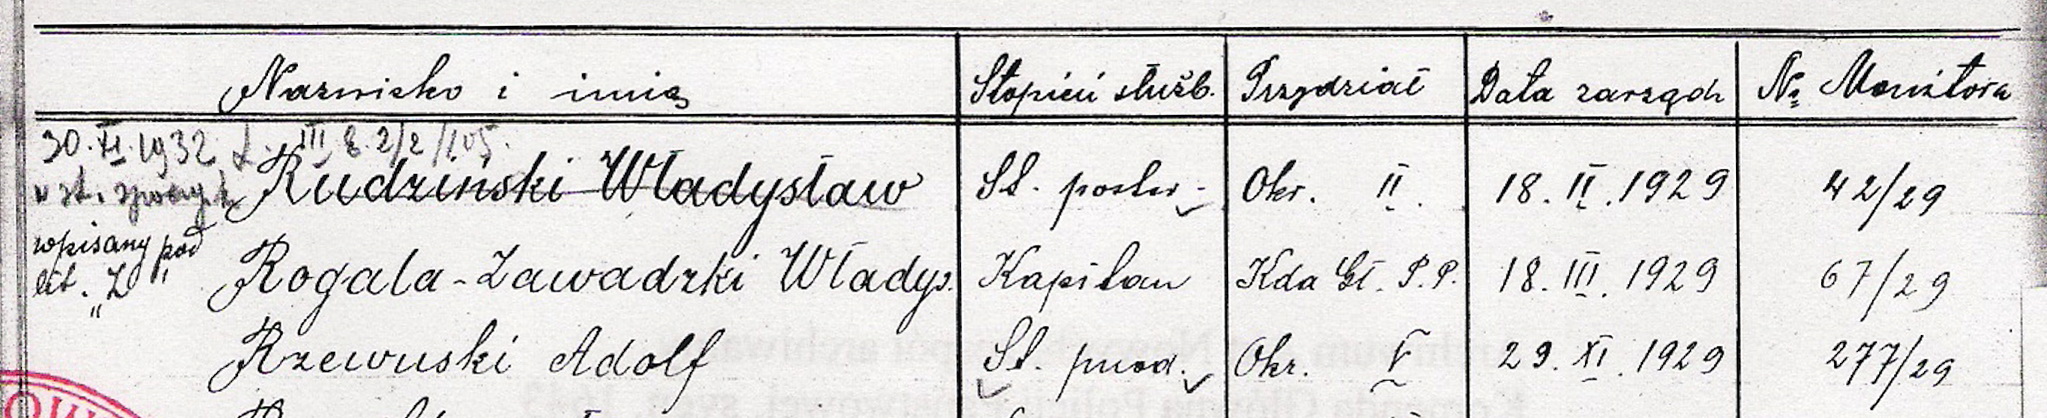 Nazwisko i imię Stopień służb. Przydział Data zarządz Nr Monitora
30.XI.1932 L. III
w st. spocz.
Rudziński Władysław St. poster. Okr. II. 18. II. 1929 42/29
wpisany pod
lit. "Z"
Rogala-Zawadzki Władys. Kapitan Kda Gł. P.P. 18. III. 1929 67/29
Rzewuski Adolf St. przod. Okr. V 29. XI. 1929 277/29